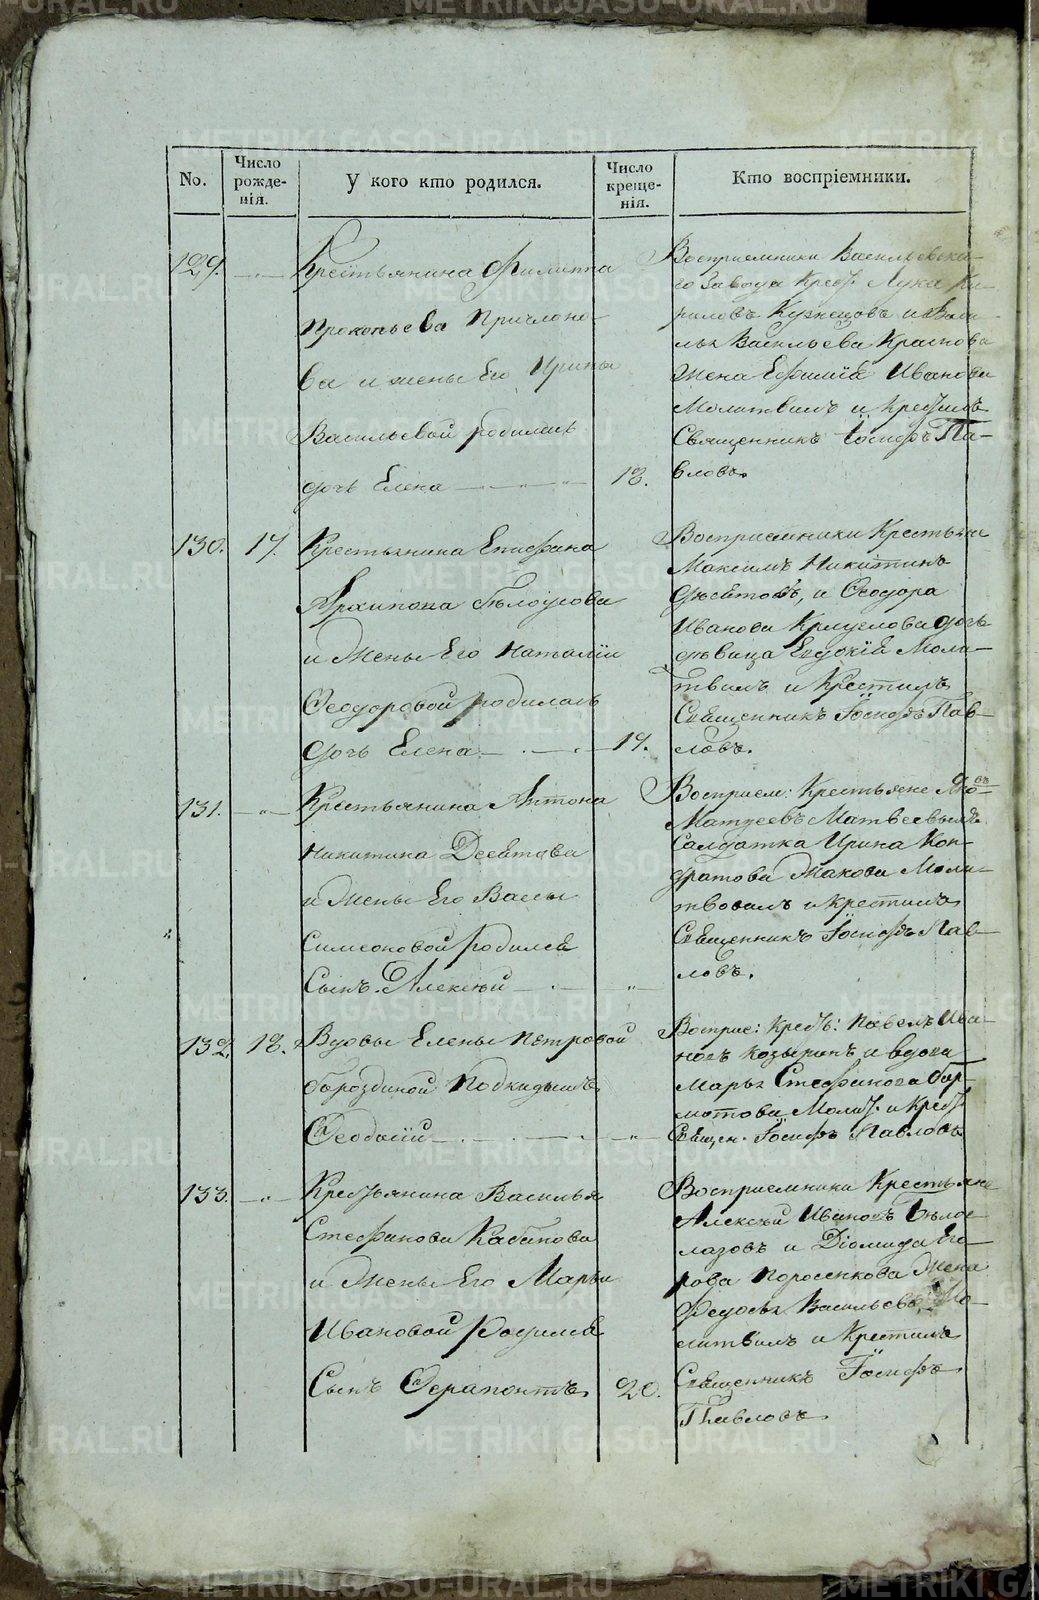 No.
Число рожде- нія.
У кого кто родился.
Число креще- нія.
Кто воспріемники.
129.
Крестьянина Филиппа
Прокопьева
ва и жены Его Ирины
Васильевой родилась
дочь Елена
18.
Восприемники Васильевска-
го Завода Крест. Лука Ки-
риловъ Кузнецовъ и
Васильева Краснова
жена Ефимія Иванова
Молитвилъ и Крестилъ
Священникъ Іосифъ Па-
вловъ.
130. 17.
Крестьянина Епифана
Архипова Бѣлоусова
и Жены Его Наталіи
Ѳеодоровой родилась
дочь Елена
19.
Восприемники Крестьяне
Максимъ Никитинъ
и Ѳеодора
Иванова дочь
дѣвица Евдокія Моли-
твилъ и Крестилъ
Священникъ Іосифъ Пав-
ловъ.
131.
Крестьянина Антона
Никитина
и Жены Его Вассы
Симеоновой Родился
Сынъ Алексѣй
Восприем: Крестьяне
Матвеевъ
Салдатка Ирина Кон-
дратова Жакова Моли-
твовалъ и крестилъ
Священникъ Іосифъ Пав-
ловъ.
132. 18.
Вдовы Елены Петровой
Бороздиной Подкидышъ
Ѳеодосій
Восприе: Крест: Павелъ Ива-
новъ Козыринъ и вдова
Марья Стефанова Бар-
матова Молит. и Крест.
Священ. Іосифъ Павловъ
133.
Крестьянина Василья
Стефанова Кабанова
и Жены Его Марьи
Ивановой Родился
Сынъ Ѳерапонтъ
20.
Восприемники Крестьяне
Алексѣй Ивановъ Бѣлог-
лазовъ и Діомида Его-
рова Поросенкова Жена
Федосья Васильева Мо-
литвилъ и Крестилъ
Священникъ Іосифъ
Павловъ
METRIKI.GASO-URAL.RU